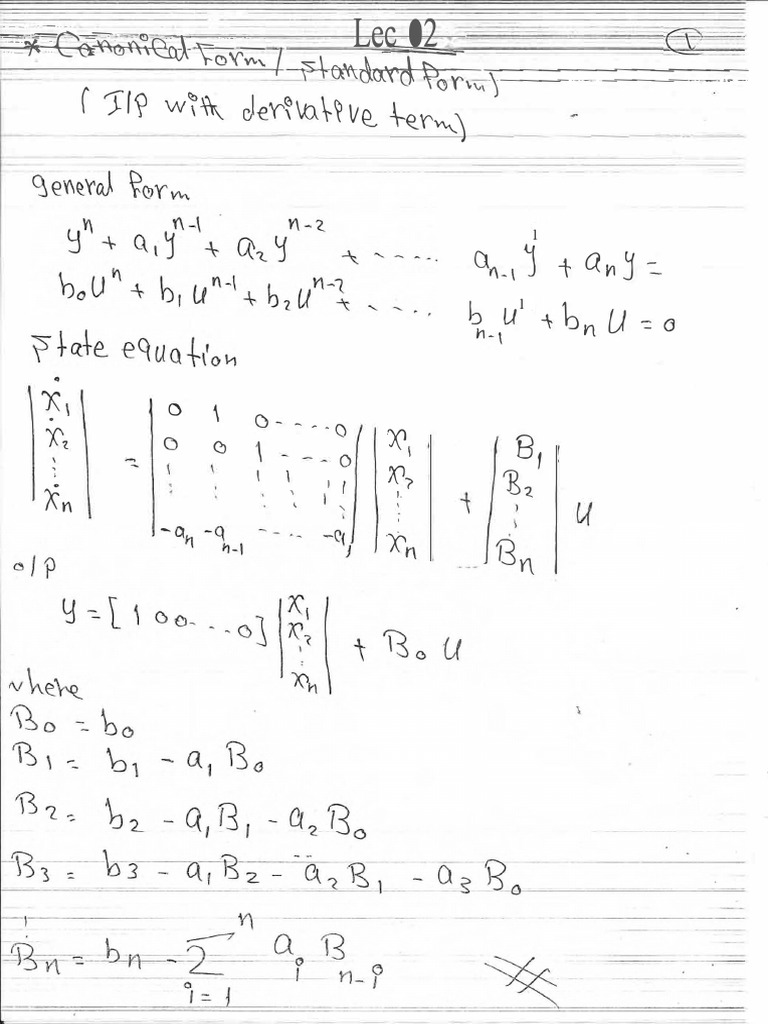 Lec 02
1
* Canonical Form / standard form)
( I/P with derivative term)
general form
yⁿ + a₁yⁿ⁻¹ + a₂yⁿ⁻² + ----- aₙ₋₁y¹ + aₙy =
b₀uⁿ + b₁uⁿ⁻¹ + b₂uⁿ⁻² + ---- bₙ₋₁u¹ + bₙu = 0
state equation
|ẋ₁| |0 1 0 ---- 0| |x₁| |B₁|
|ẋ₂| = |0 0 1 --- 0| |x₂| + |B₂| u
|⋮| |⋮ ⋮ ⋮ ⋮ ⋮| |⋮| |⋮|
|ẋₙ| |-aₙ -aₙ₋₁ ---- -a₁| |xₙ| |Bₙ|
o/p
y = [1 0 0 ... 0] |x₁ x₂ ⋮ xₙ| + B₀ u
where
B₀ = b₀
B₁ = b₁ - a₁B₀
B₂ = b₂ - a₁B₁ - a₂B₀
B₃ = b3 - a₁B₂ - a₂B₁ - a₃B₀
⋮
Bₙ = bₙ - Σⁿᵢ₌₁ aᵢ Bₙ₋ᵢ